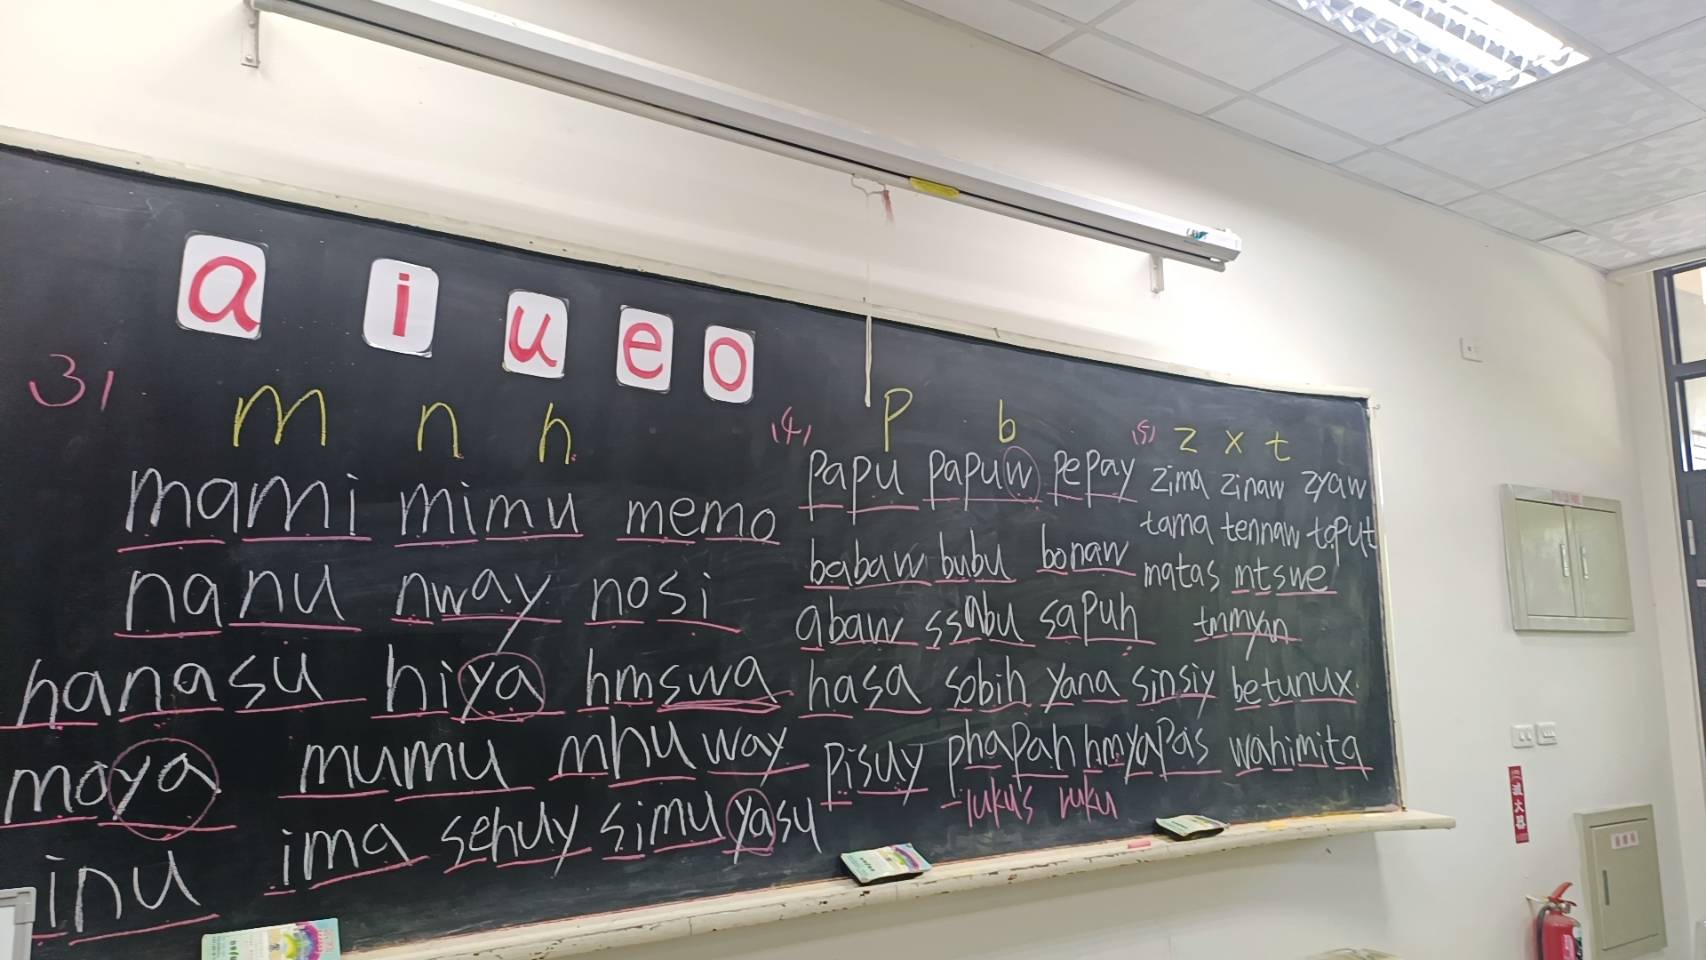 a i u e o
3)
m n h
mami mimu memo
nanu nway nosi
hanasu hiya hmswa
maya mumu mhuway
inu ima sehuy simu yasu
(4) p b
papu papuw pepay
babaw bubu bonaw
abaw ssabu sapuh
hasa sobih yana sinsiy betunux
pisuy phapah hmyapas wahimita
lukus ruku
(5) z x t
zima zinaw zyaw
tama tennaw toput
matas mtswe
tmmyan
滅火器